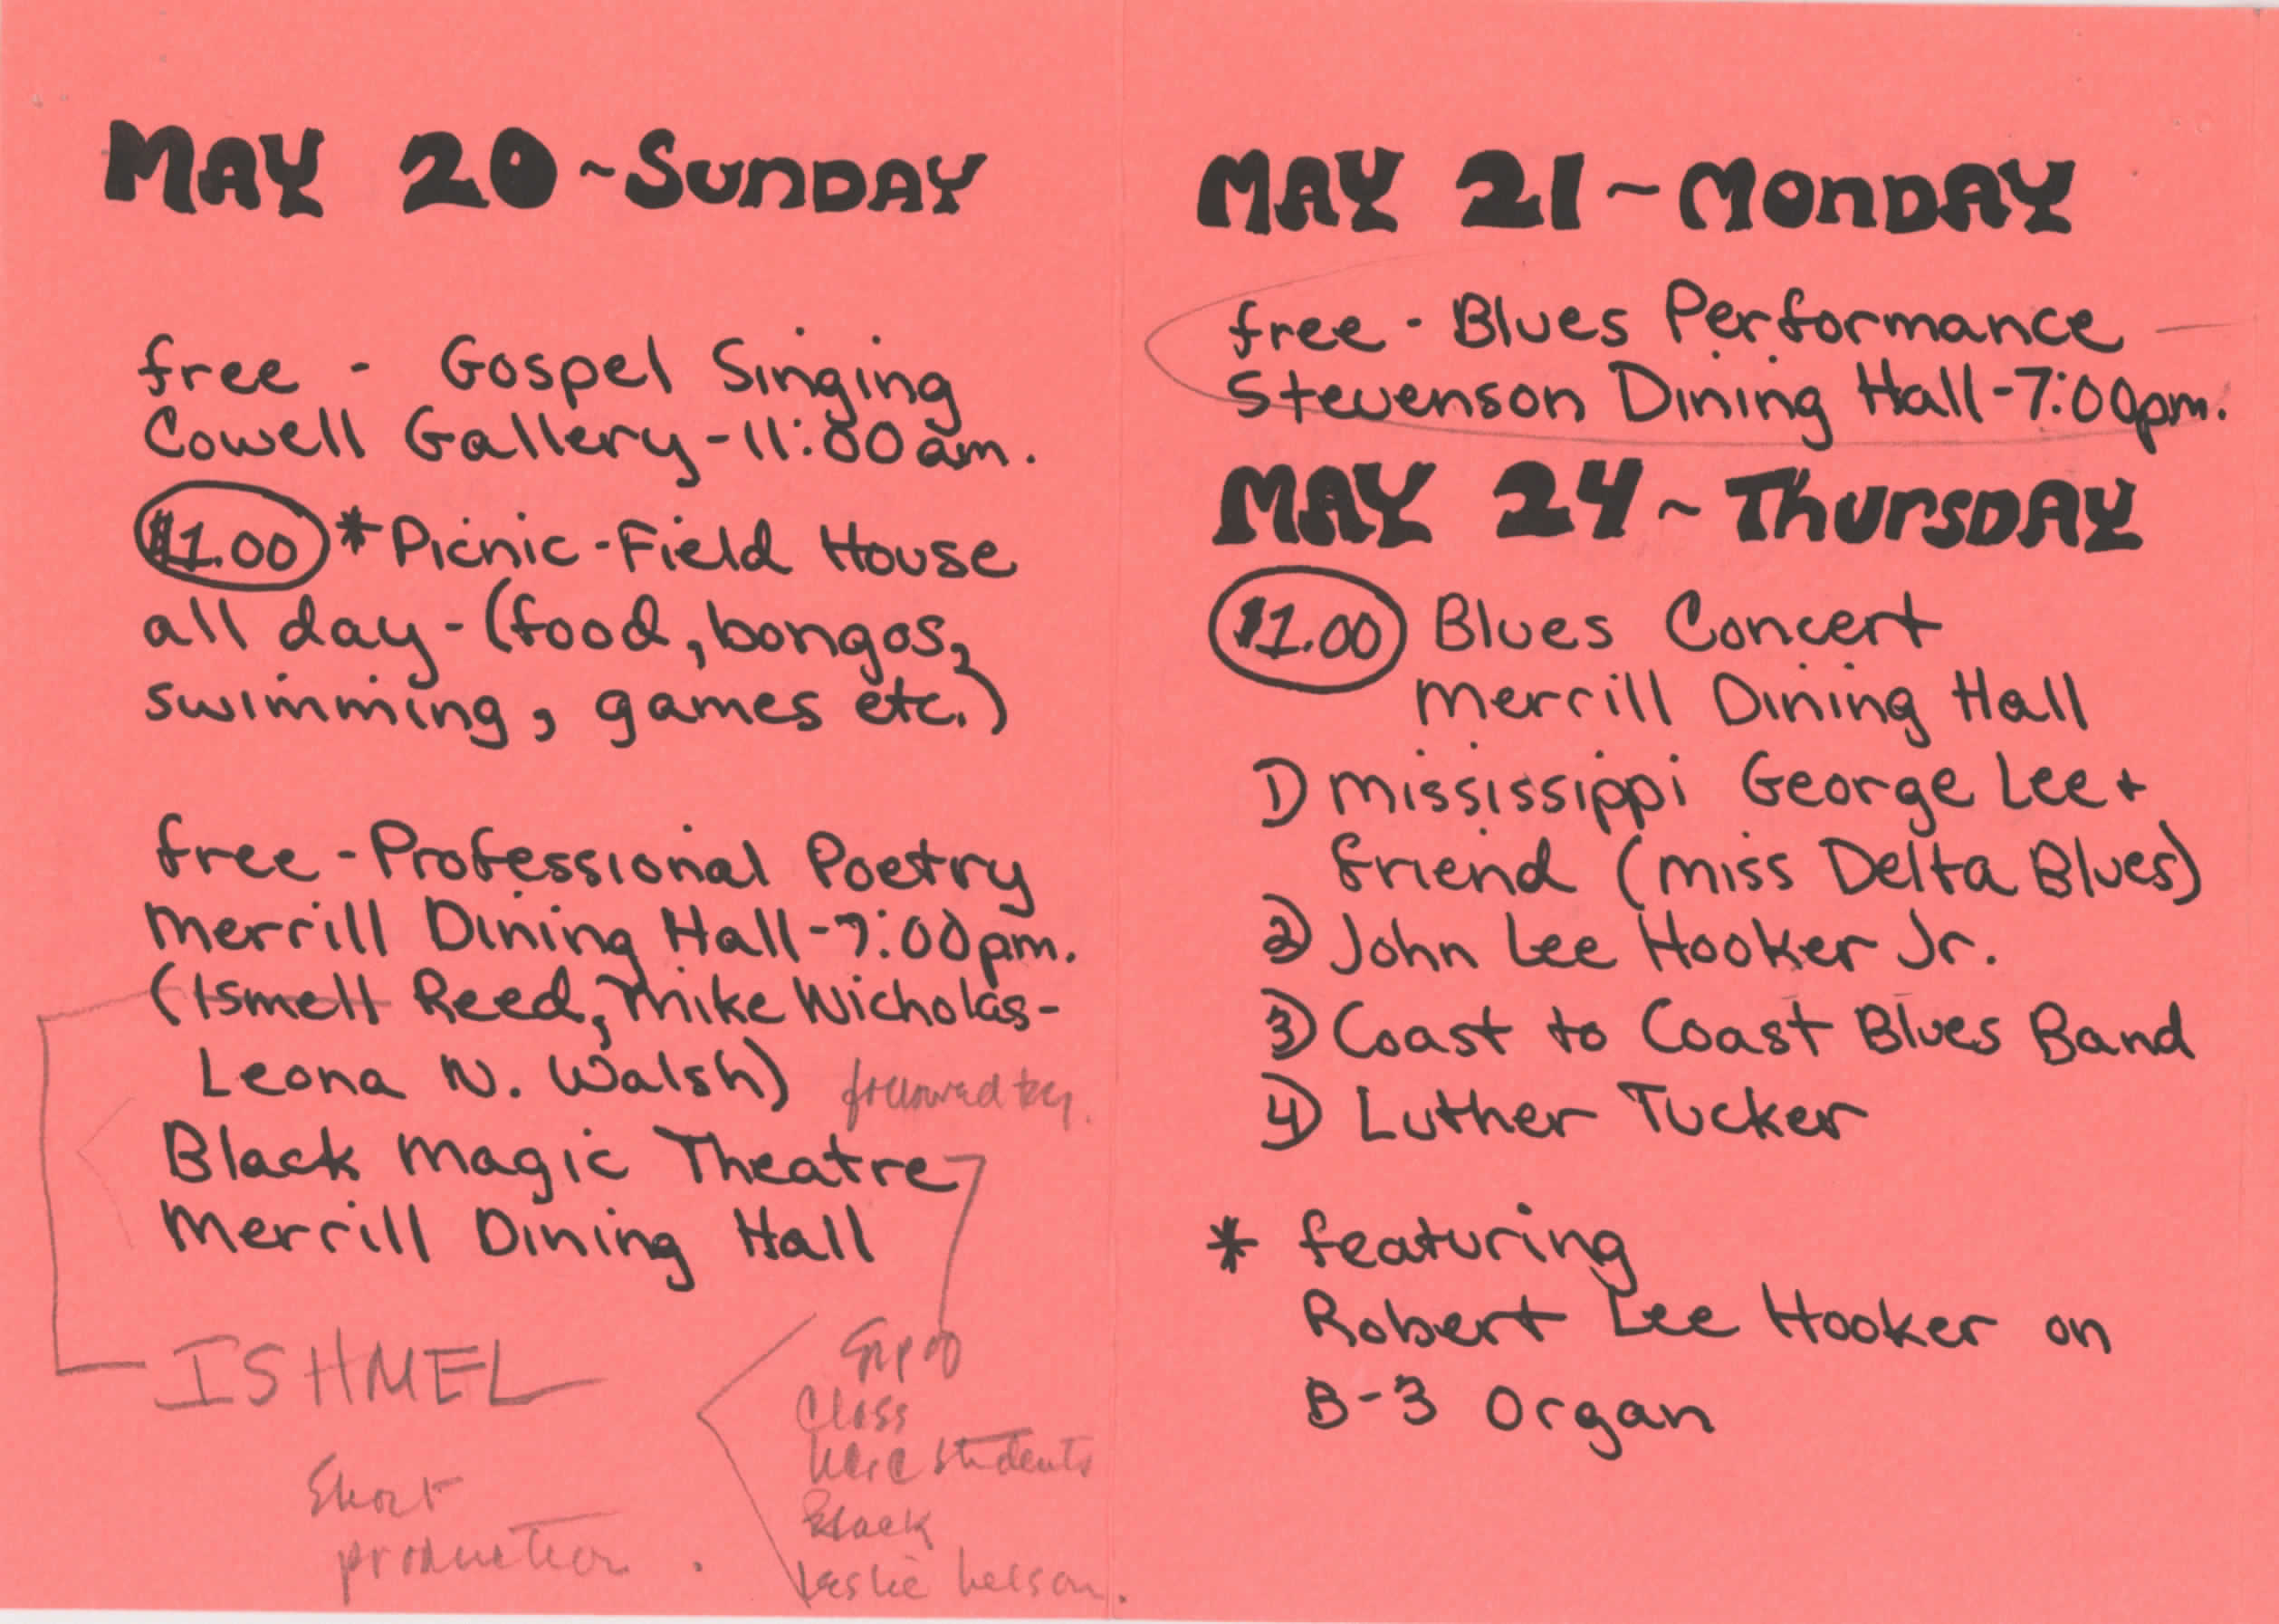 MAY 20 ~ SUNDAY
free - Gospel Singing
Cowell Gallery - 11:00 am.
$1.00 * Picnic - Field House
all day - (food, bongos,
swimming, games etc.)
free - Professional Poetry
Merrill Dining Hall - 7:00 pm.
(Ismell Reed, Mike Nicholas-
Leona N. Walsh) followed by.
Black Magic Theatre
Merrill Dining Hall
ISHMEL
Short
production.
Class
students
Black
Leslie
MAY 21 ~ MONDAY
free - Blues Performance -
Stevenson Dining Hall - 7:00pm.
MAY 24 ~ THURSDAY
$1.00 Blues Concert
Merrill Dining Hall
1) Mississippi George Lee +
friend (Miss Delta Blues)
2) John Lee Hooker Jr.
3) Coast to Coast Blues Band
4) Luther Tucker
* featuring
Robert Lee Hooker on
B-3 Organ